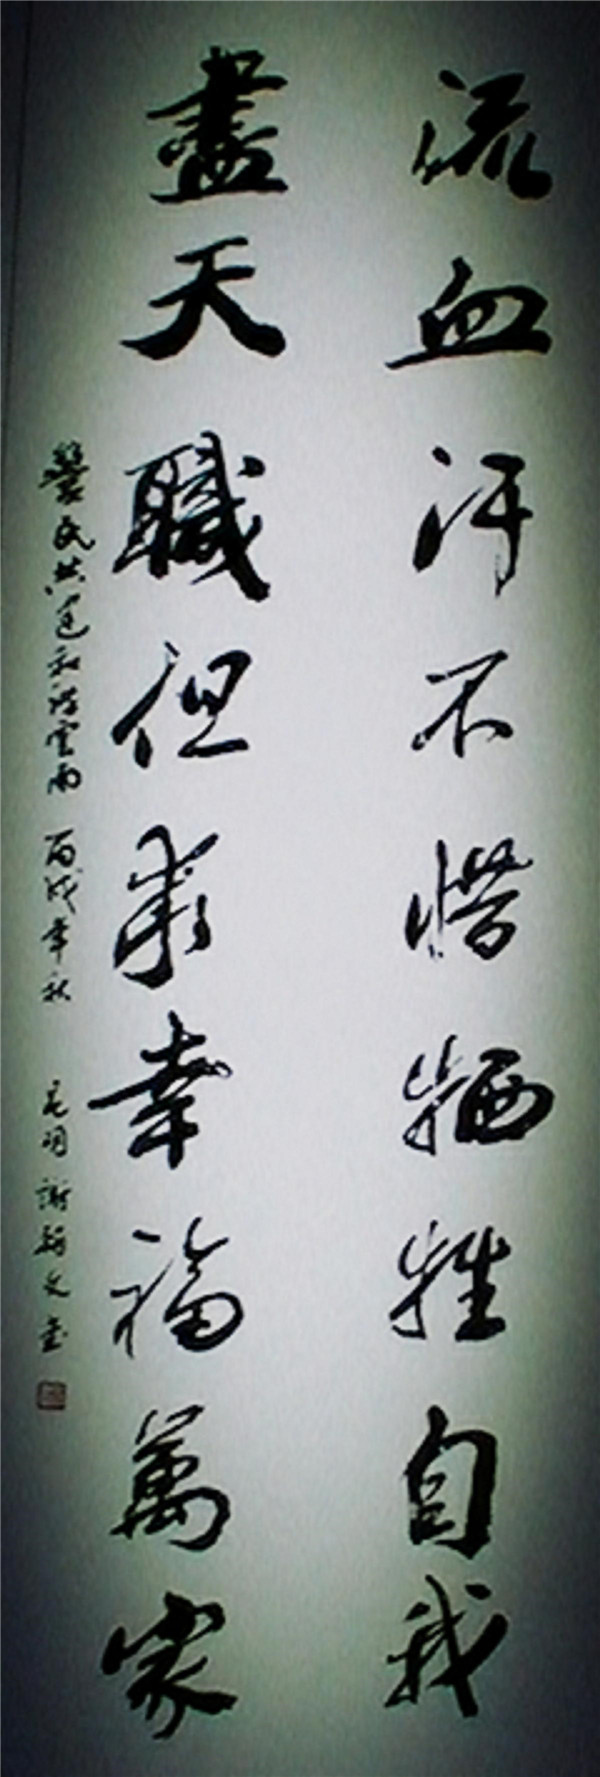 流血汗不惜牺牲自我
盡天職但求幸福萬家
警民共建和谐雲南 丙戌年秋 昆明 謝 文書